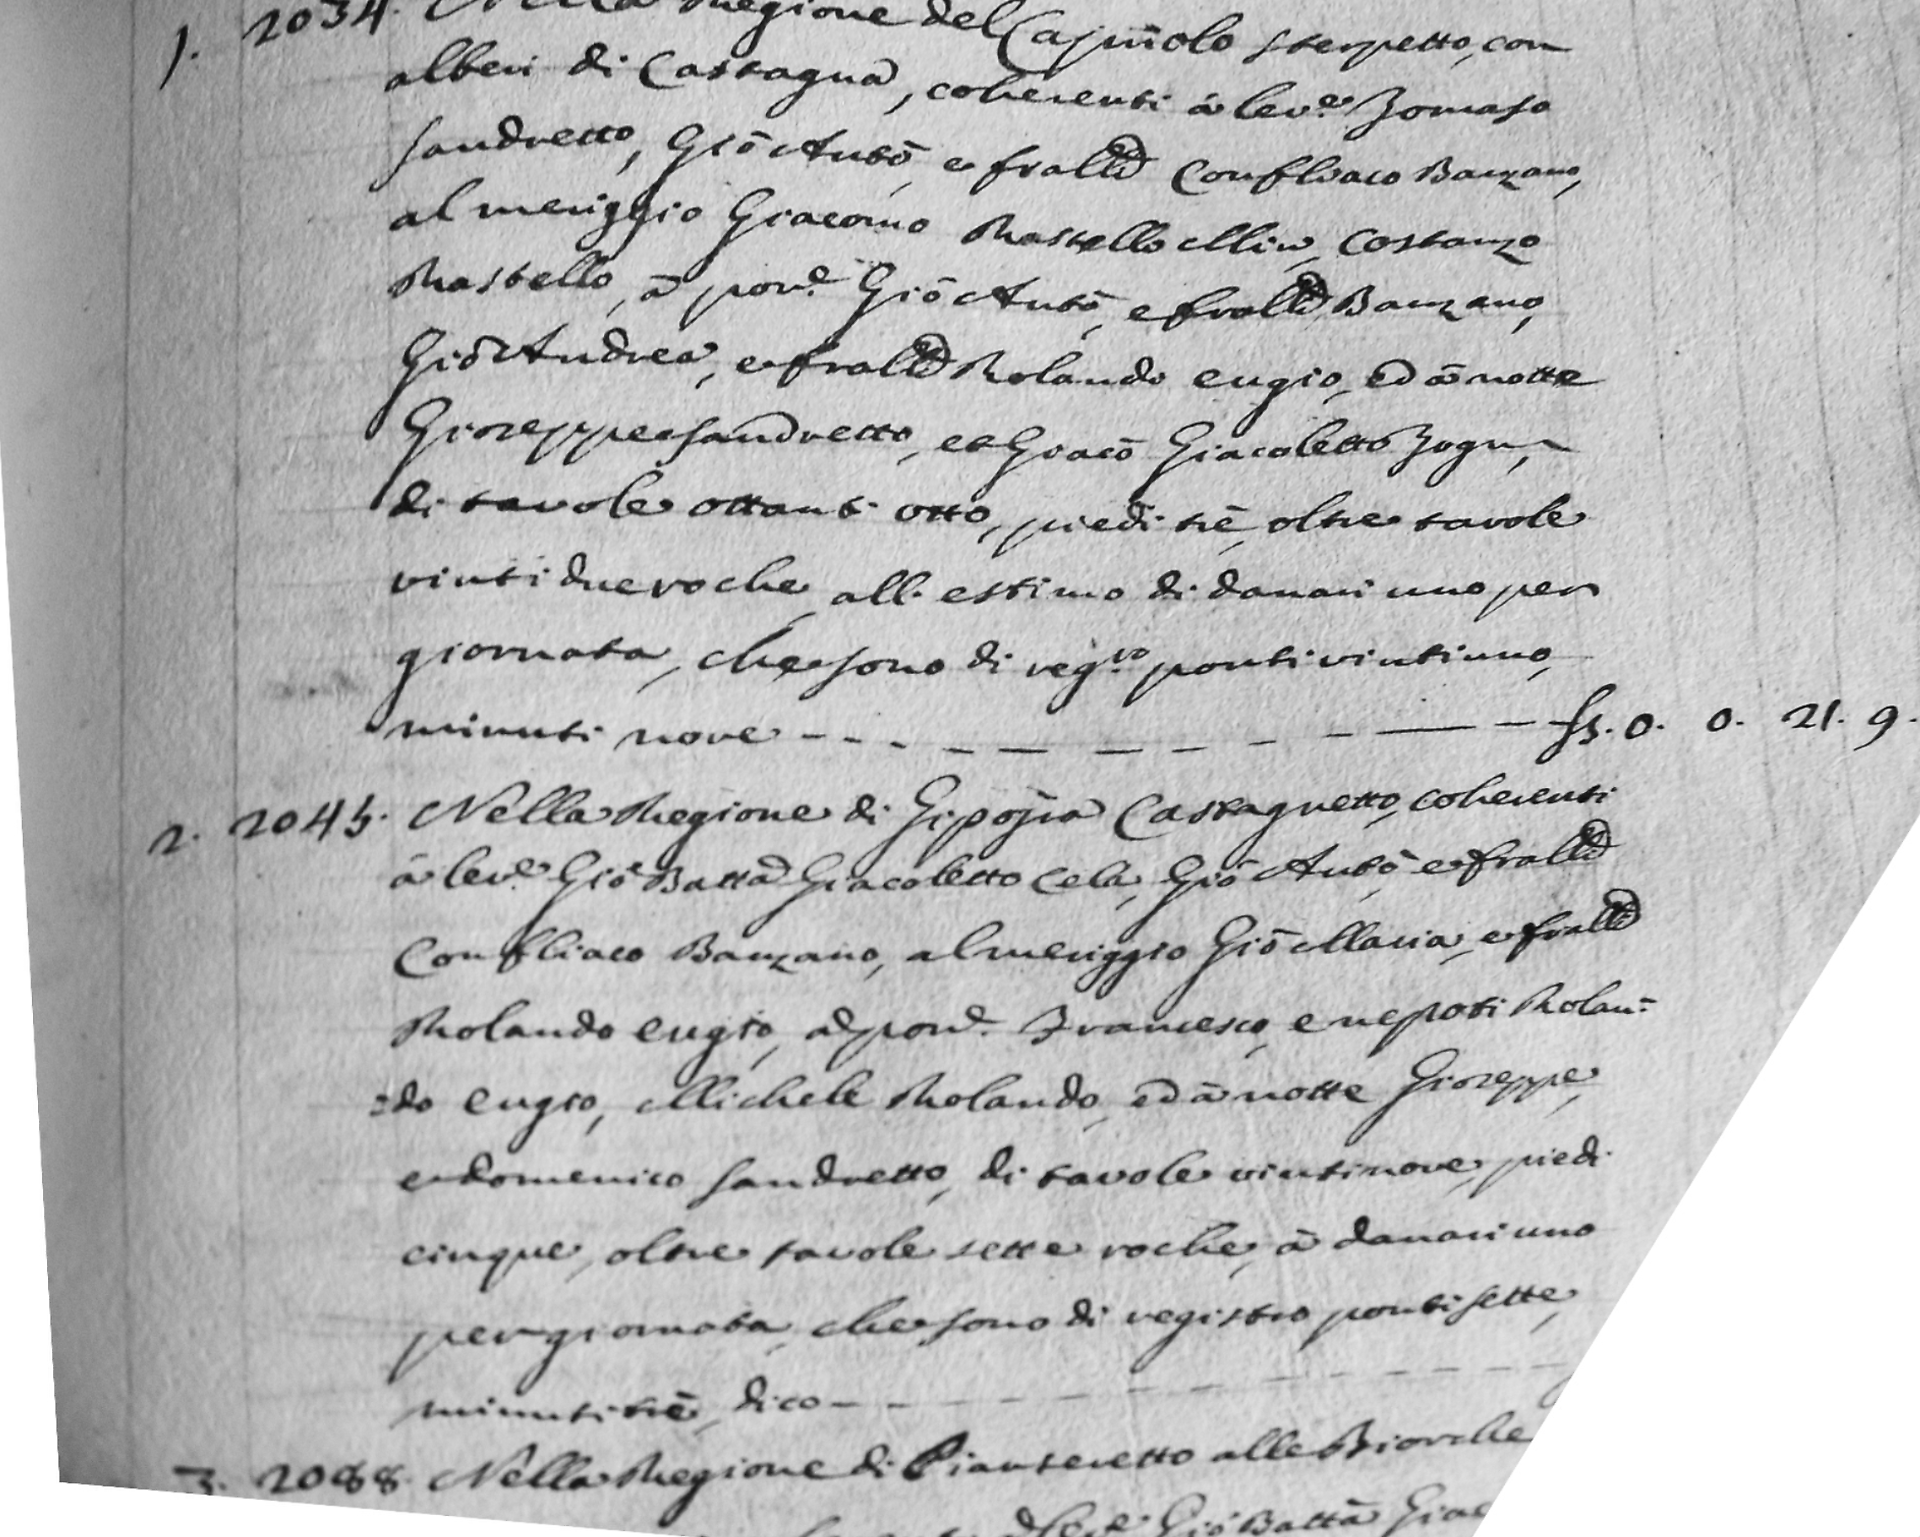 1. 2034. Nella Regione del Capiñolo sterpetto, con
alberi di Castagna, coherenti à lev.e Tomaso
sandretto, Giō Antō, e fralli Confliaco Banzano,
al meriggio Giacomo Rastello Min, Costanzo
Rastello, à pon.e Giō Antō, e fralli Banzano,
Giō Andrea, e fralli Rolando eugio, ed à notte
Gioseppe sandretto, et Giacō Giacoletto Togn,
di tavole ottant' otto, piedi trè, oltre tavole
vinti due roche, all' estimo di danari uno per
giornata, che sono di reg.ro ponti vintiuno,
minuti nove - - - - - - fs. 0. 0. 21. 9.
2. 2045. Nella Regione di Castagnetto, coherenti
à lev.e Giō Batta Giacoletto Cela, Giō Antō, e fralli
Confliaco Banzano, al meriggio Giō Maria, e fralli
Rolando eugio, à pon.e Francesco, e nepoti Rolan=
=do eugio, Michele Rolando, ed à notte Gioseppe,
e domenico sandretto, di tavole vintinove, piedi
cinque, oltre tavole sette roche, à danari uno
per giornata, che sono di registro ponti sette,
minuti trè, dico - - - - -
3. 2088. Nella Regione di Pianseretto alle
Giō Batta Giac